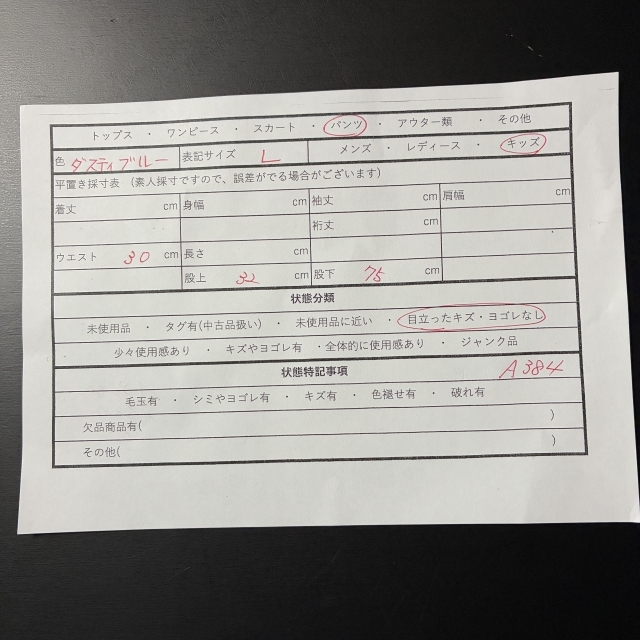 トップス ・ ワンピース ・ スカート ・ パンツ ・ アウター類 ・ その他
色 ダスティブルー 表記サイズ L メンズ ・ レディース ・ キッズ
平置き採寸表 （素人採寸ですので、誤差がでる場合がございます）
着丈 cm 身幅 cm 袖丈 cm 肩幅 cm
裄丈 cm
ウエスト 30 cm 長さ cm
股上 32 cm 股下 75 cm
状態分類
未使用品 ・ タグ有(中古品扱い) ・ 未使用品に近い ・ 目立ったキズ・ヨゴレなし
少々使用感あり ・ キズやヨゴレ有 ・全体的に使用感あり ・ ジャンク品
状態特記事項 A384
毛玉有 ・ シミやヨゴレ有 ・ キズ有 ・ 色褪せ有 ・ 破れ有
欠品商品有( )
その他( )